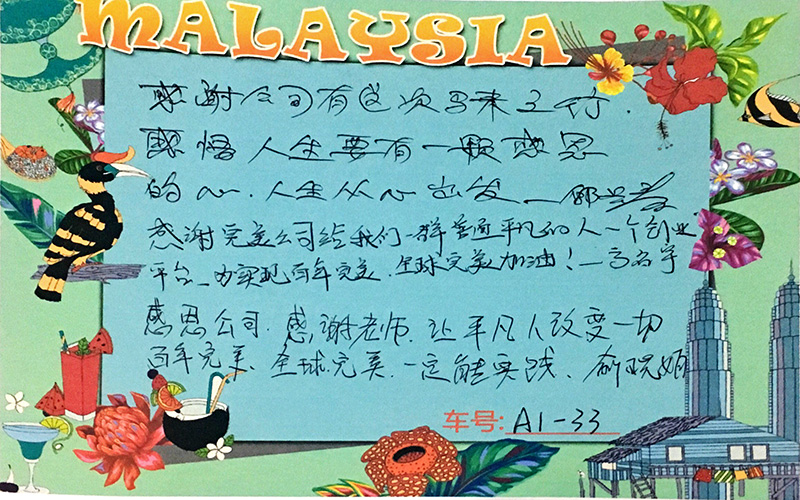 MALAYSIA
感谢公司有这次马来之行.
感悟人生要有一颗感恩
的心.人生从心出发—
感谢完美公司给我们一群普通平凡的人一个创业
平台、为实现百年完美.全球完美加油!—高名宇
感恩公司.感谢老师.让平凡人改变一切
百年完美、全球完美.一定能实践、俞晓娟
车号: A1-33